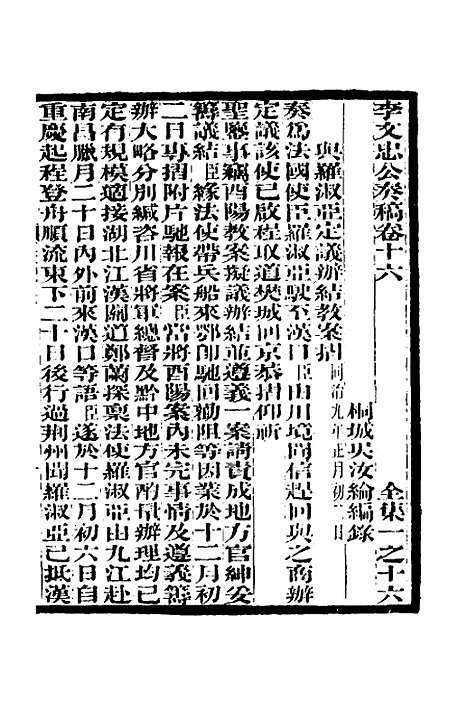 李文忠公奏稿卷十六　全集一之十六
桐城吳汝綸編錄
與羅淑亞定議辦結教案摺同治九年正月初二日
奏爲法國使臣羅淑亞駛至漢口臣由川境聞信趕回與之商辦
定議該使已啟程取道樊城回京恭摺仰祈
聖鑒事竊酉陽教案擬議辦結並遵義一案請責成地方官紳妥
籌議結臣緣法使帶兵船來鄂卽馳回勸阻等因業於十二月初
二日專摺附片馳報在案臣當將酉陽案內未完事情及遵義籌
辦大略分別緘咨川省將軍總督及黔中地方官酌量辦理均已
定有規模適接湖北江漢關道鄭蘭探稟法使羅淑亞由九江赴
南昌臘月二十日內外前來漢口等語臣遂於十二月初六日自
重慶起程登舟順流東下二十日後行過荆州聞羅淑亞已抵漢